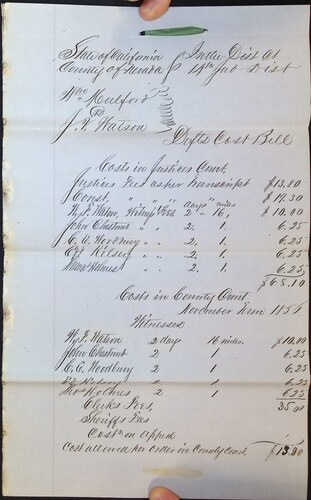 State of California In the Dist Ct
County of Nevada 14th Jud Dist
Wm Mulford
J. T. Watson
Defts Cost Bill
Costs in Justices Court.
Justices Fees as per Transcript $13.80
Const. " " " $14.30
days miles
Witness Fees 2 16, $10.00
John Chestnut " " 2, 1, 6.25
C. C. Woodbury " " 2, 1, 6.25
Kelsey " " 2, 1, 6.25
Holmes " " 2, 1. 6.25
$65.10
Costs in County Court
November Term 1856
Witnesses
Watson 2 days 16 miles $10.00
John Chestnut 2 1 6.25
C. C. Woodbury 2 1 6.25
2 1 6.25
Holmes 2 1 6.25
Clerks Fees, 35.00
Sheriffs Fees
Cost on Appeal
Cost allowed as per order in County Court.